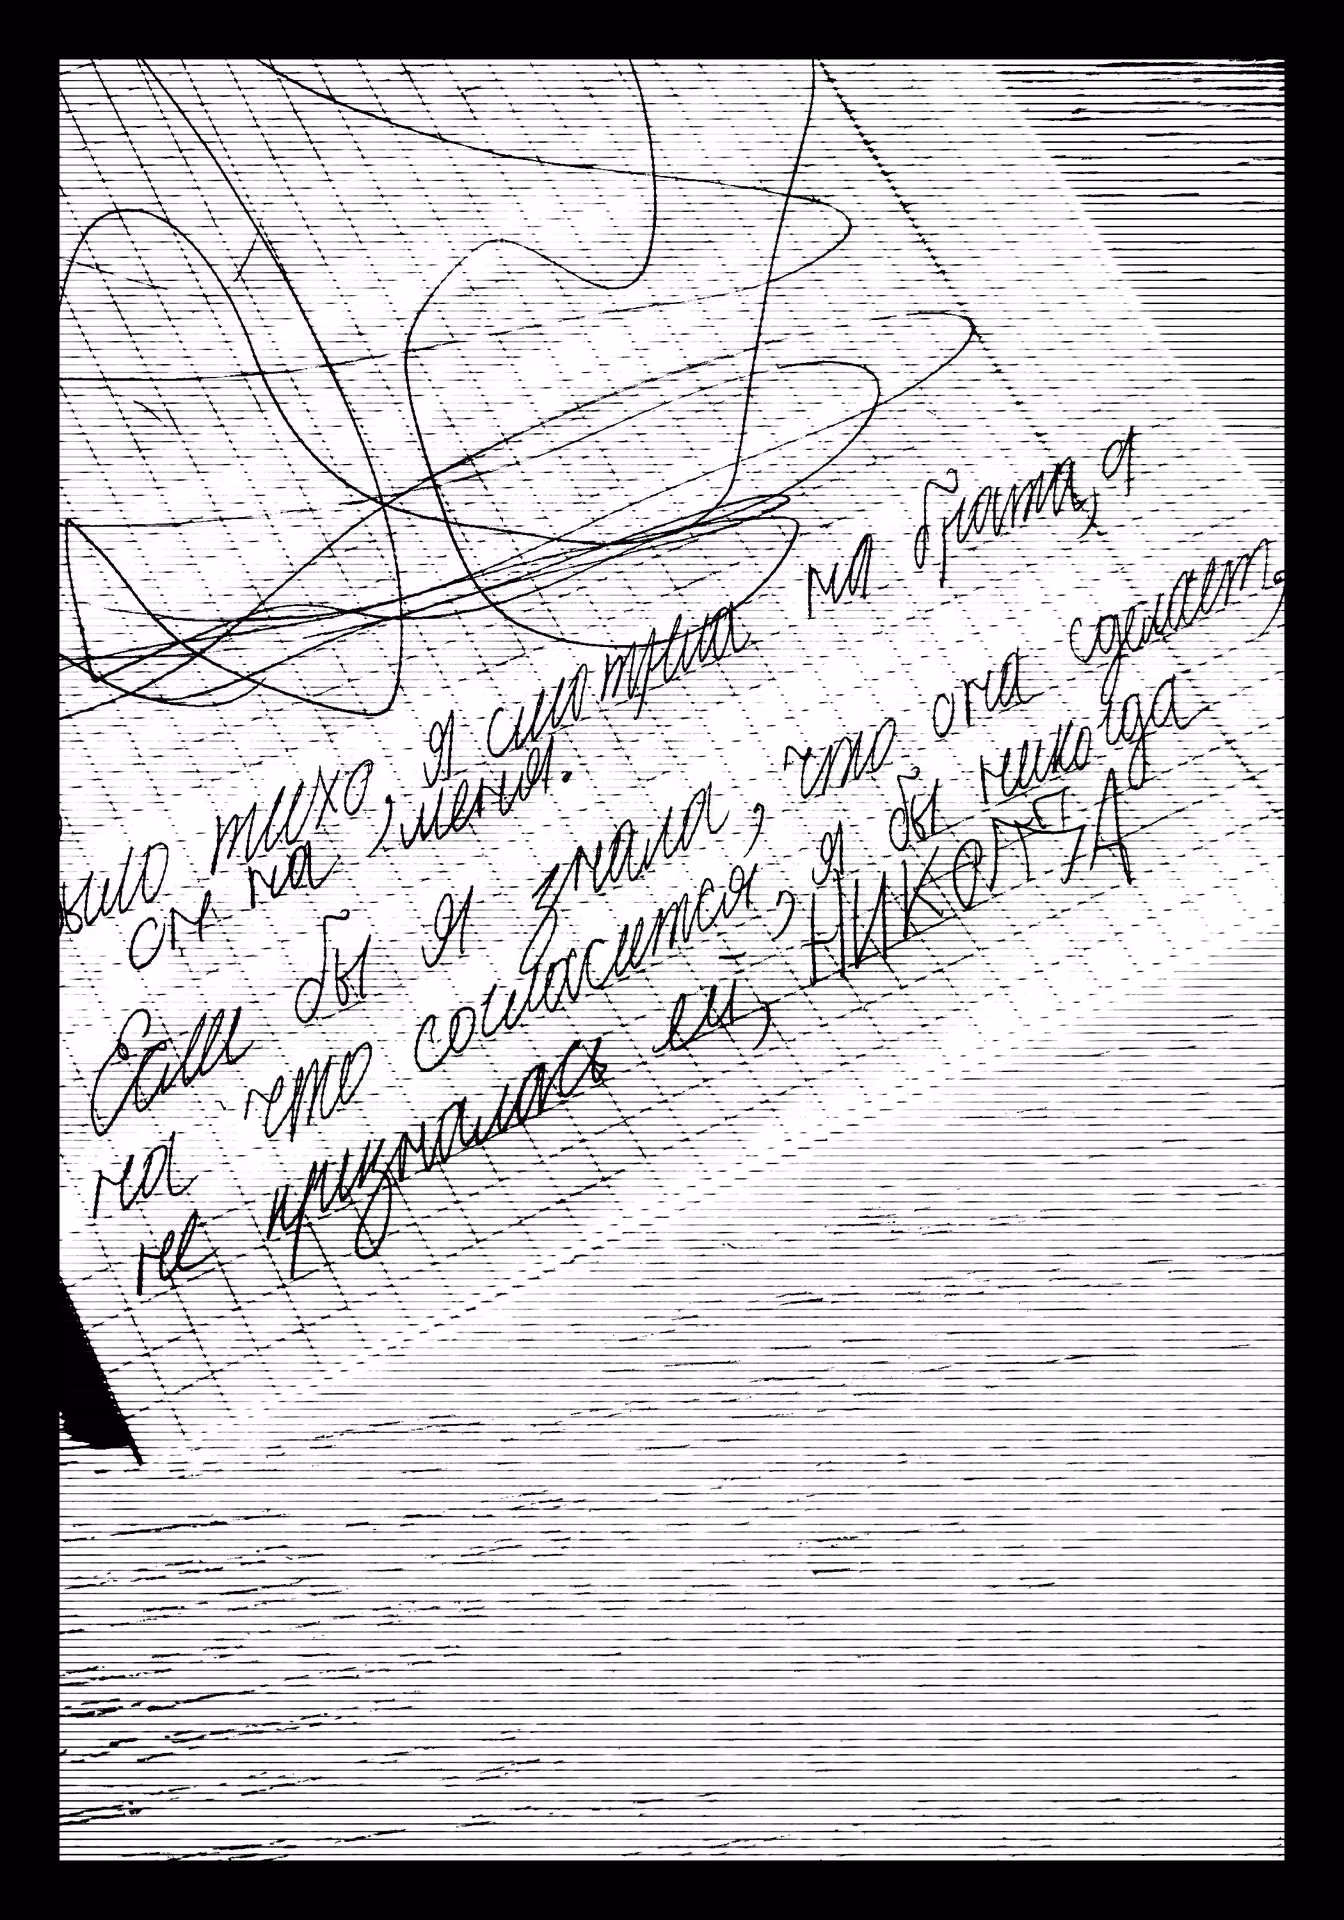 было тихо, я смотрила на брата, я
он на меня.
Если бы я знала, что она сделает,
на что согласится, я бы никогда
не призналась ей, НИКОГДА